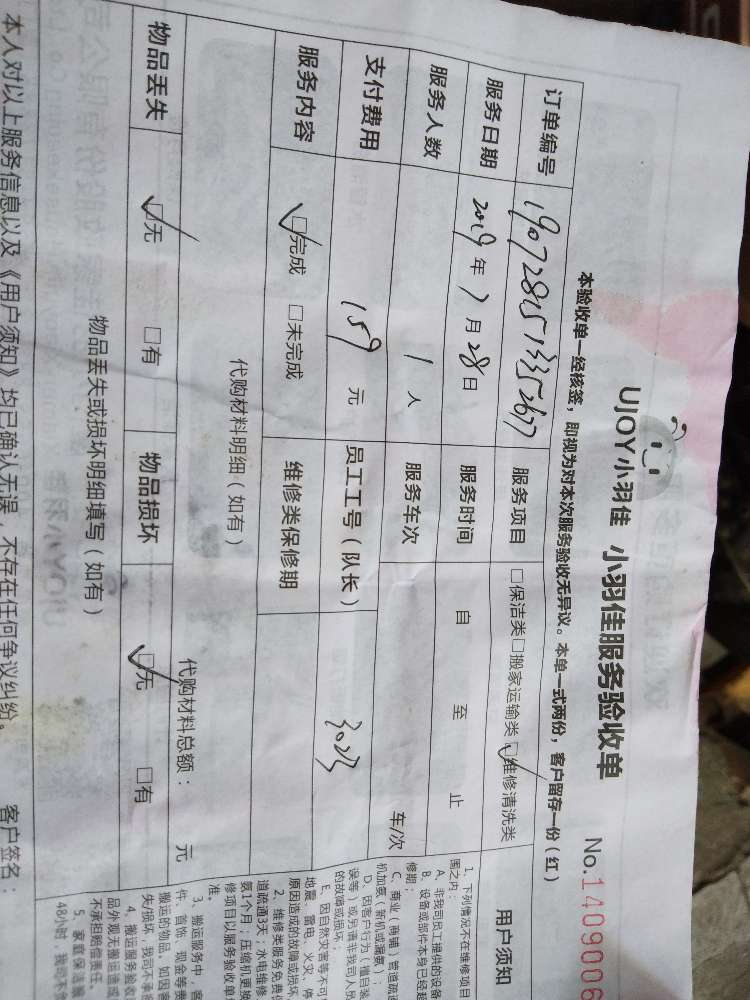 UJOY小羽佳 小羽佳服务验收单 No.1409006
本验收单一经核签，即视为对本次服务验收无异议。本单一式两份，客户留存一份（红）
订单编号 服务项目 □保洁类□搬家运输类□维修清洗类 用户须知
服务日期 2019年7月28日 服务时间 自 至 止
服务人数 1人 服务车次 车/次
支付费用 159元 员工工号（队长） 3023
服务内容 □完成 □未完成 维修类保修期
代购材料明细（如有）
代购材料总额： 元
物品丢失 □无 □有 物品损坏 □无 □有
物品丢失或损坏明细填写（如有）
本人对以上服务信息以及《用户须知》均已确认无误，不存在任何争议纠纷。 客户签名：
1、下列情况不在维修项目
围之内：
A、非我司员工提供的设备
B、设备或部件本身已经超
修期；
C、商业（商铺）管道疏通
机加氨（新机或漏氨）；
D、因客户行为（擅自装
误等）或另请非我司人员
的故障或损坏
E、因自然灾害等不可
地震、雷电、火灾、停
原因造成的故障或损坏
2、维修类服务免费保
道疏通5天；水电维修
氨1个月；压缩机更换
修项目以服务验收单
准。
3、搬运服务中，客
件、首饰、现金等贵
搬运的物品，如因客
失/损坏，我司不承担
4、搬运服务验收
品外观无搬运造成
不承担赔偿责任。
5、家庭保洁服
48小时，我司不